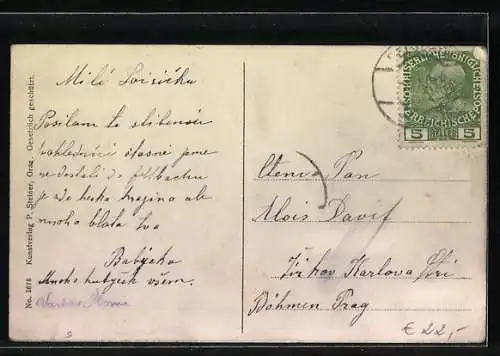 Milá Loisičko
Posílam ti slíbenou
pohlednici šťasně jsme
se dostali do
je zde heska krajina ale
mnoho blata tva
Babička
Mnoho hubyček všem.
No. 1678 Kunstverlag P. Strohner, Graz. Gesetzlich geschützt.
KAISERLICHE KÖNIGLICHE ÖSTERREICHISCHE POST
5 HELLER 5
Ctěni Pan
Alois David
Žižkov Karlova tři
Böhmen Prag
€ 22,-